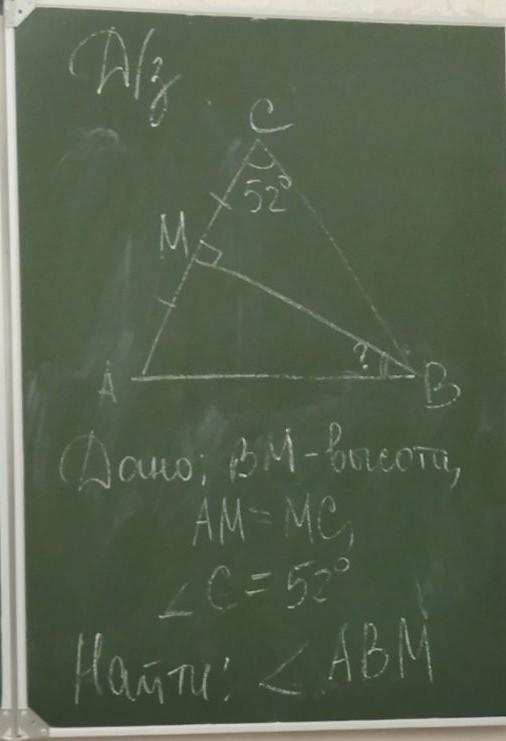 Д/з
C
52°
M
?
A
B
Дано: BM-высота,
AM = MC,
∠C = 52°
Найти: ∠ABM